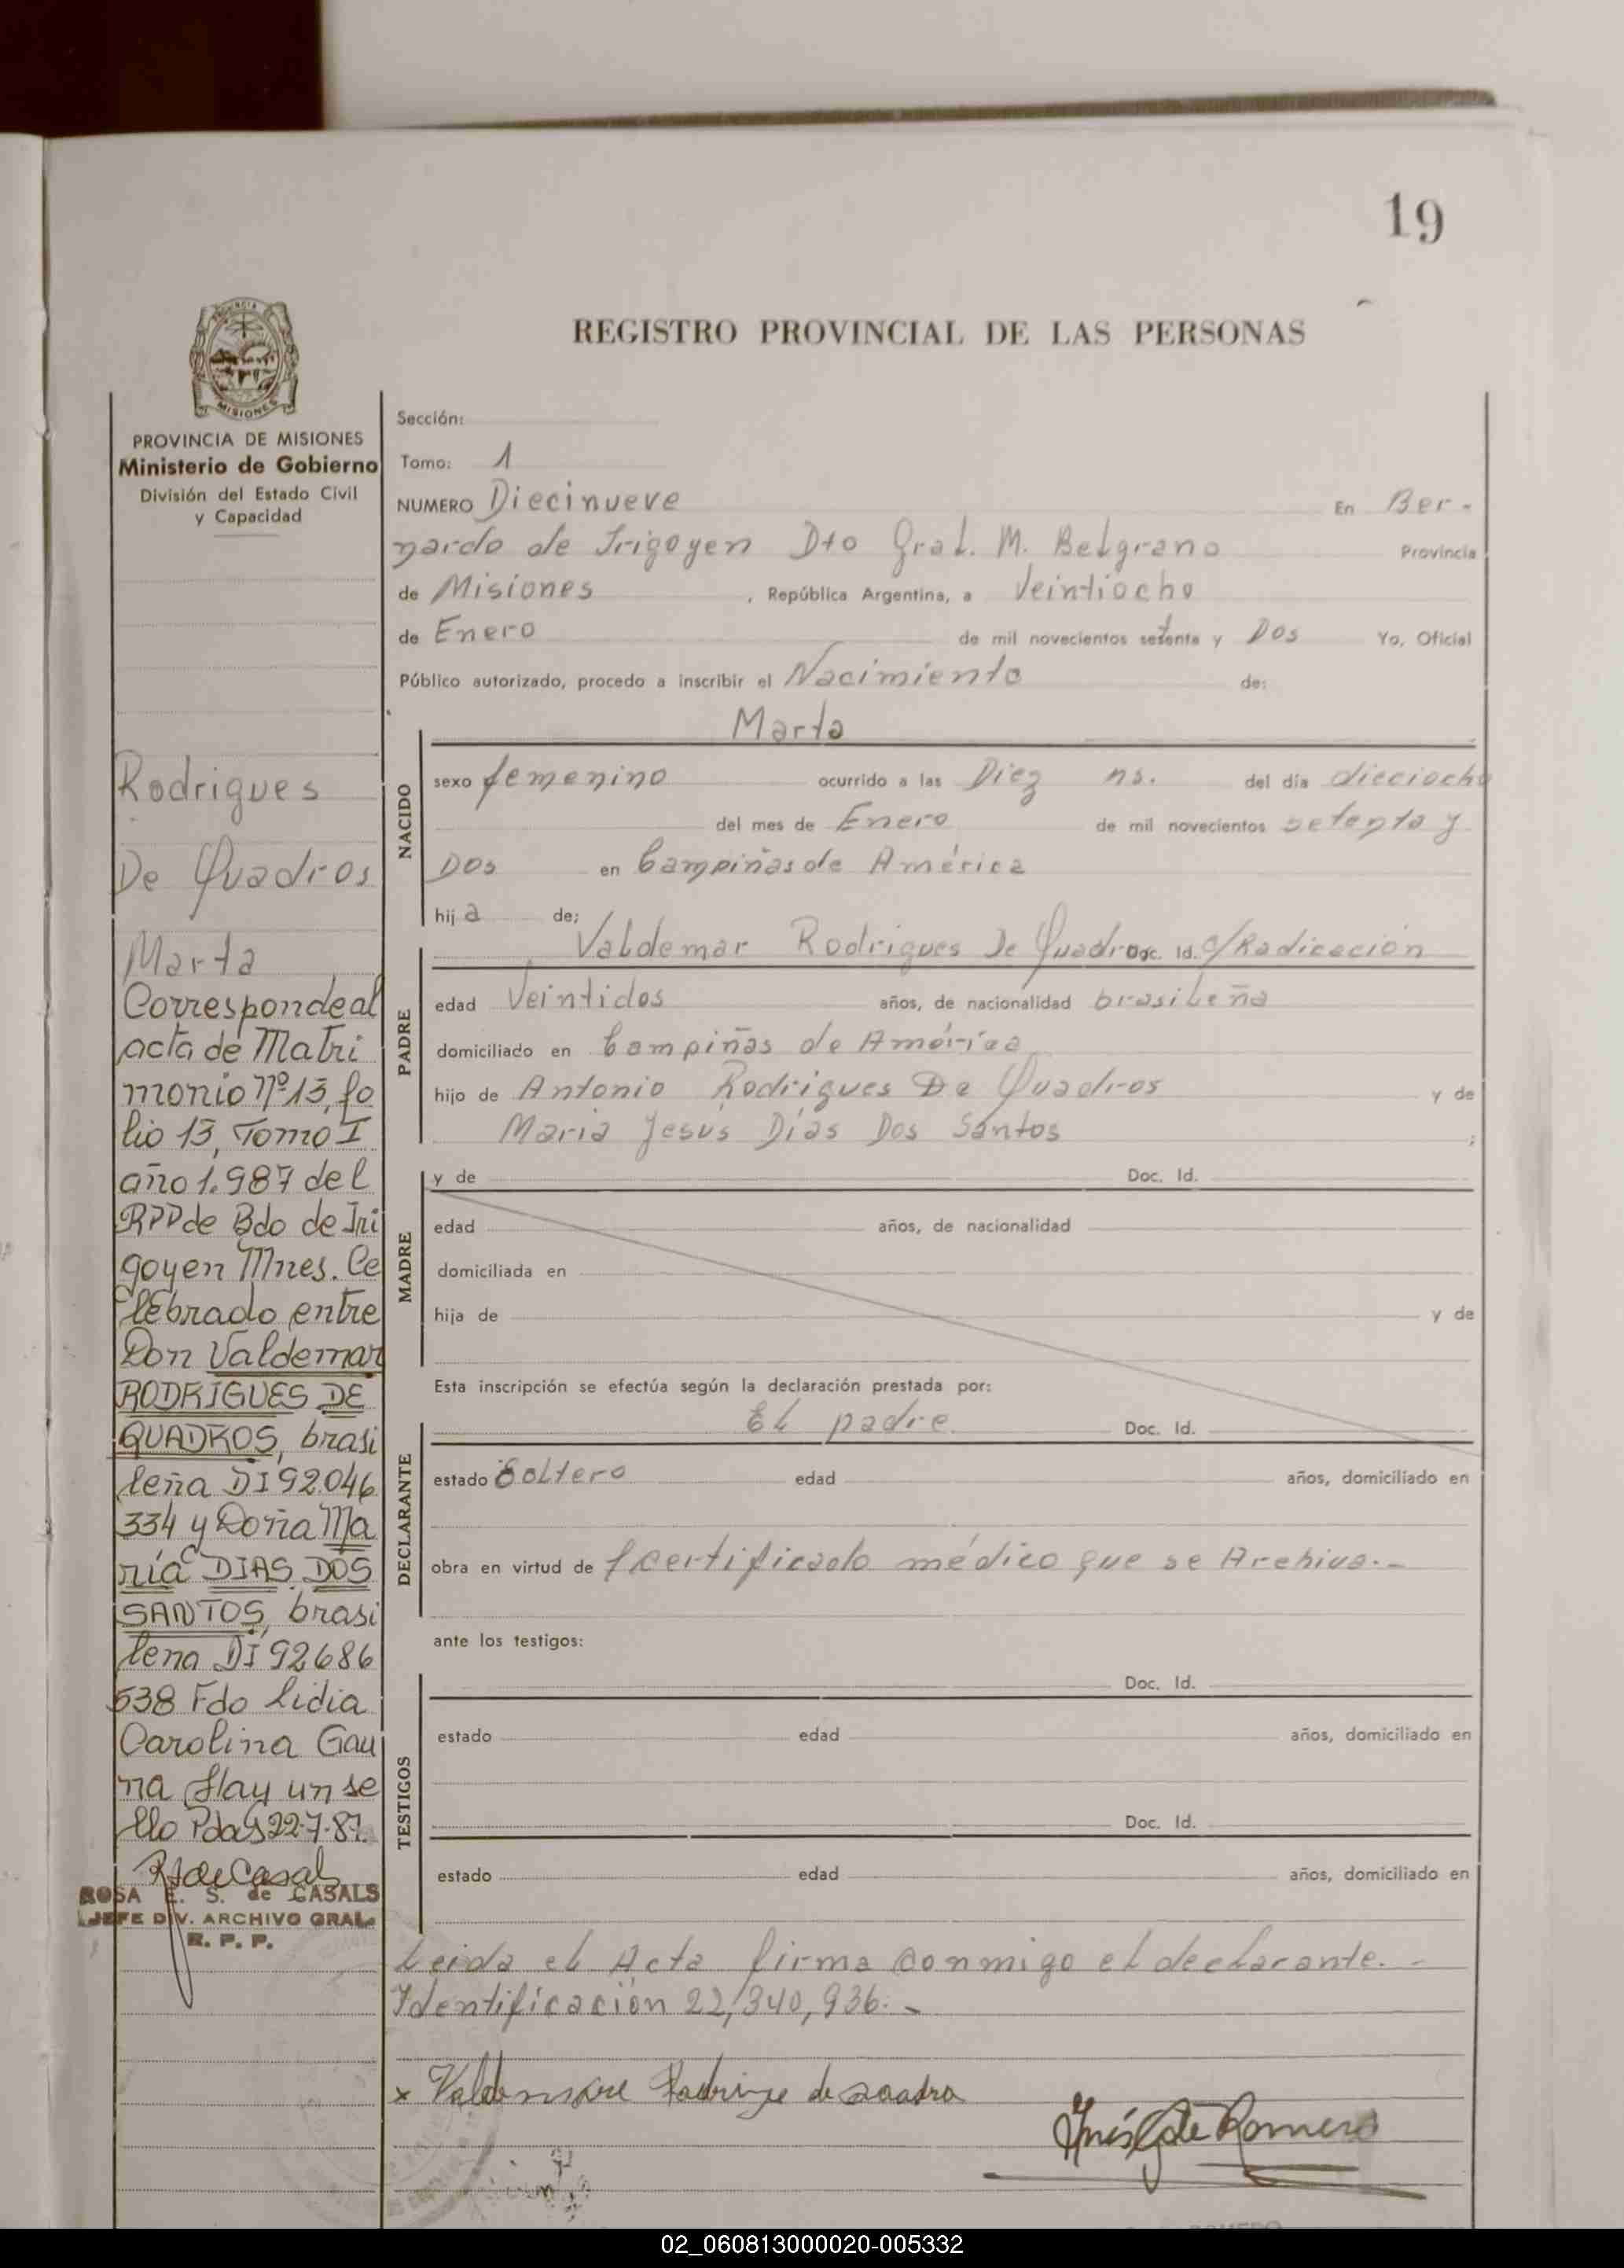 19
REGISTRO PROVINCIAL DE LAS PERSONAS
MISIONES
PROVINCIA DE MISIONES
Ministerio de Gobierno
División del Estado Civil
y Capacidad
Rodrigues
De Quadros
Marta
Corresponde al
acta de Matri
monio Nº 13, fo
lio 13, Tomo I
año 1.987 del
RPP de Bdo de Iri
goyen Mnes. Ce
lebrado entre
Don Valdemar
RODRIGUES DE
QUADROS, brasi
leña DI 92.046
334 y Doña Ma
ría DIAS DOS
SANTOS, brasi
lena DI 92686
538 Fdo lidia
Carolina Gau
na Hay un se
llo Pdas 22-7-87.
ROSA E. S. de CASALS
JEFE DIV. ARCHIVO GRAL.
R. P. P.
Sección:
Tomo: 1
NUMERO Diecinueve En Ber-
nardo de Irigoyen Dto Gral. M. Belgrano Provincia
de Misiones , República Argentina, a Veintiocho
de Enero de mil novecientos setenta y Dos Yo, Oficial
Público autorizado, procedo a inscribir el Nacimiento de:
NACIDO
Marta
sexo femenino ocurrido a las Diez hs. del día dieciocho
del mes de Enero de mil novecientos setenta y
Dos en Campiñas de América
hija de:
PADRE
Valdemar Rodrigues De Quadros Doc. Id. C/Radicación
edad Veintidos años, de nacionalidad brasileña
domiciliado en Campiñas de América
hijo de Antonio Rodrigues De Quadros y de
Maria Jesús Días Dos Santos ;
MADRE
y de Doc. Id.
edad años, de nacionalidad
domiciliada en
hija de y de
Esta inscripción se efectúa según la declaración prestada por:
DECLARANTE
El padre Doc. Id.
estado Soltero edad años, domiciliado en
obra en virtud de certificado médico que se Archiva.-
ante los testigos:
TESTIGOS
Doc. Id.
estado edad años, domiciliado en
Doc. Id.
estado edad años, domiciliado en
Leida el Acta firma conmigo el declarante.-
Identificación 22,340,936.-
x
Inés G de Romero
02_060813000020-005332